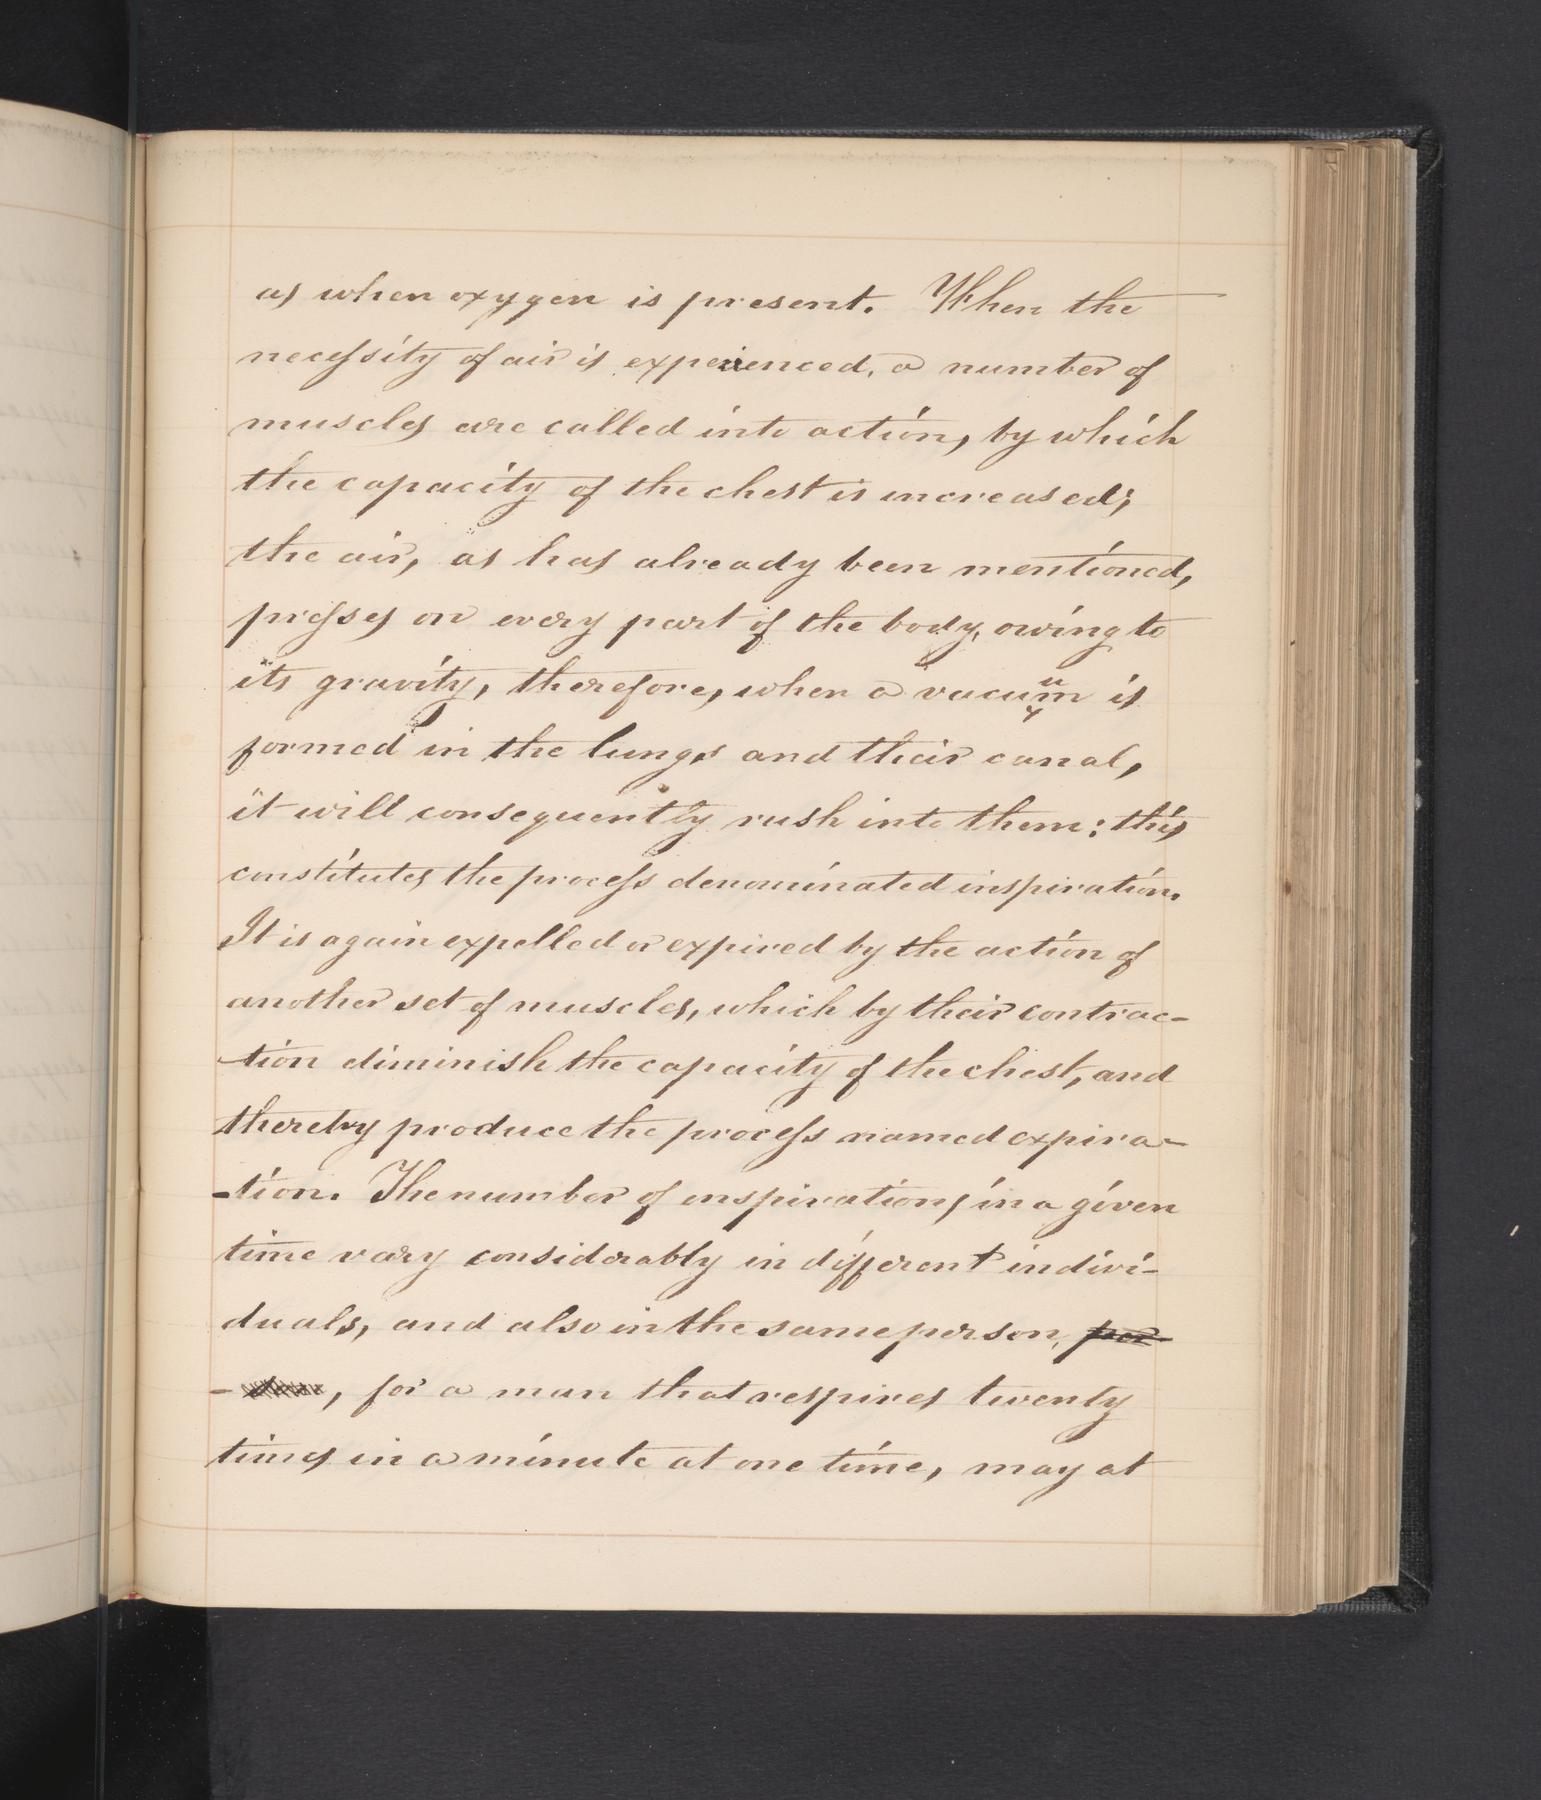 as when oxygen is present. When the
necessity of air is experienced, a number of
muscles are called into action, by which
the capacity of the chest is increased;
the air, as has already been mentioned,
presses on every part of the body, owing to
its gravity, therefore, when a vacuum is
formed in the lungs and their canal,
it will consequently rush into them: this
constitutes the process denominated inspiration.
It is again expelled or expired by the action of
another set of muscles, which by their contrac-
-tion diminish the capacity of the chest, and
thereby produce the process named expira-
-tion. The number of inspirations in a given
time vary considerably in different indivi-
duals, and also in the same person, per
-, for a man that respires twenty
times in a minute at one time, may at